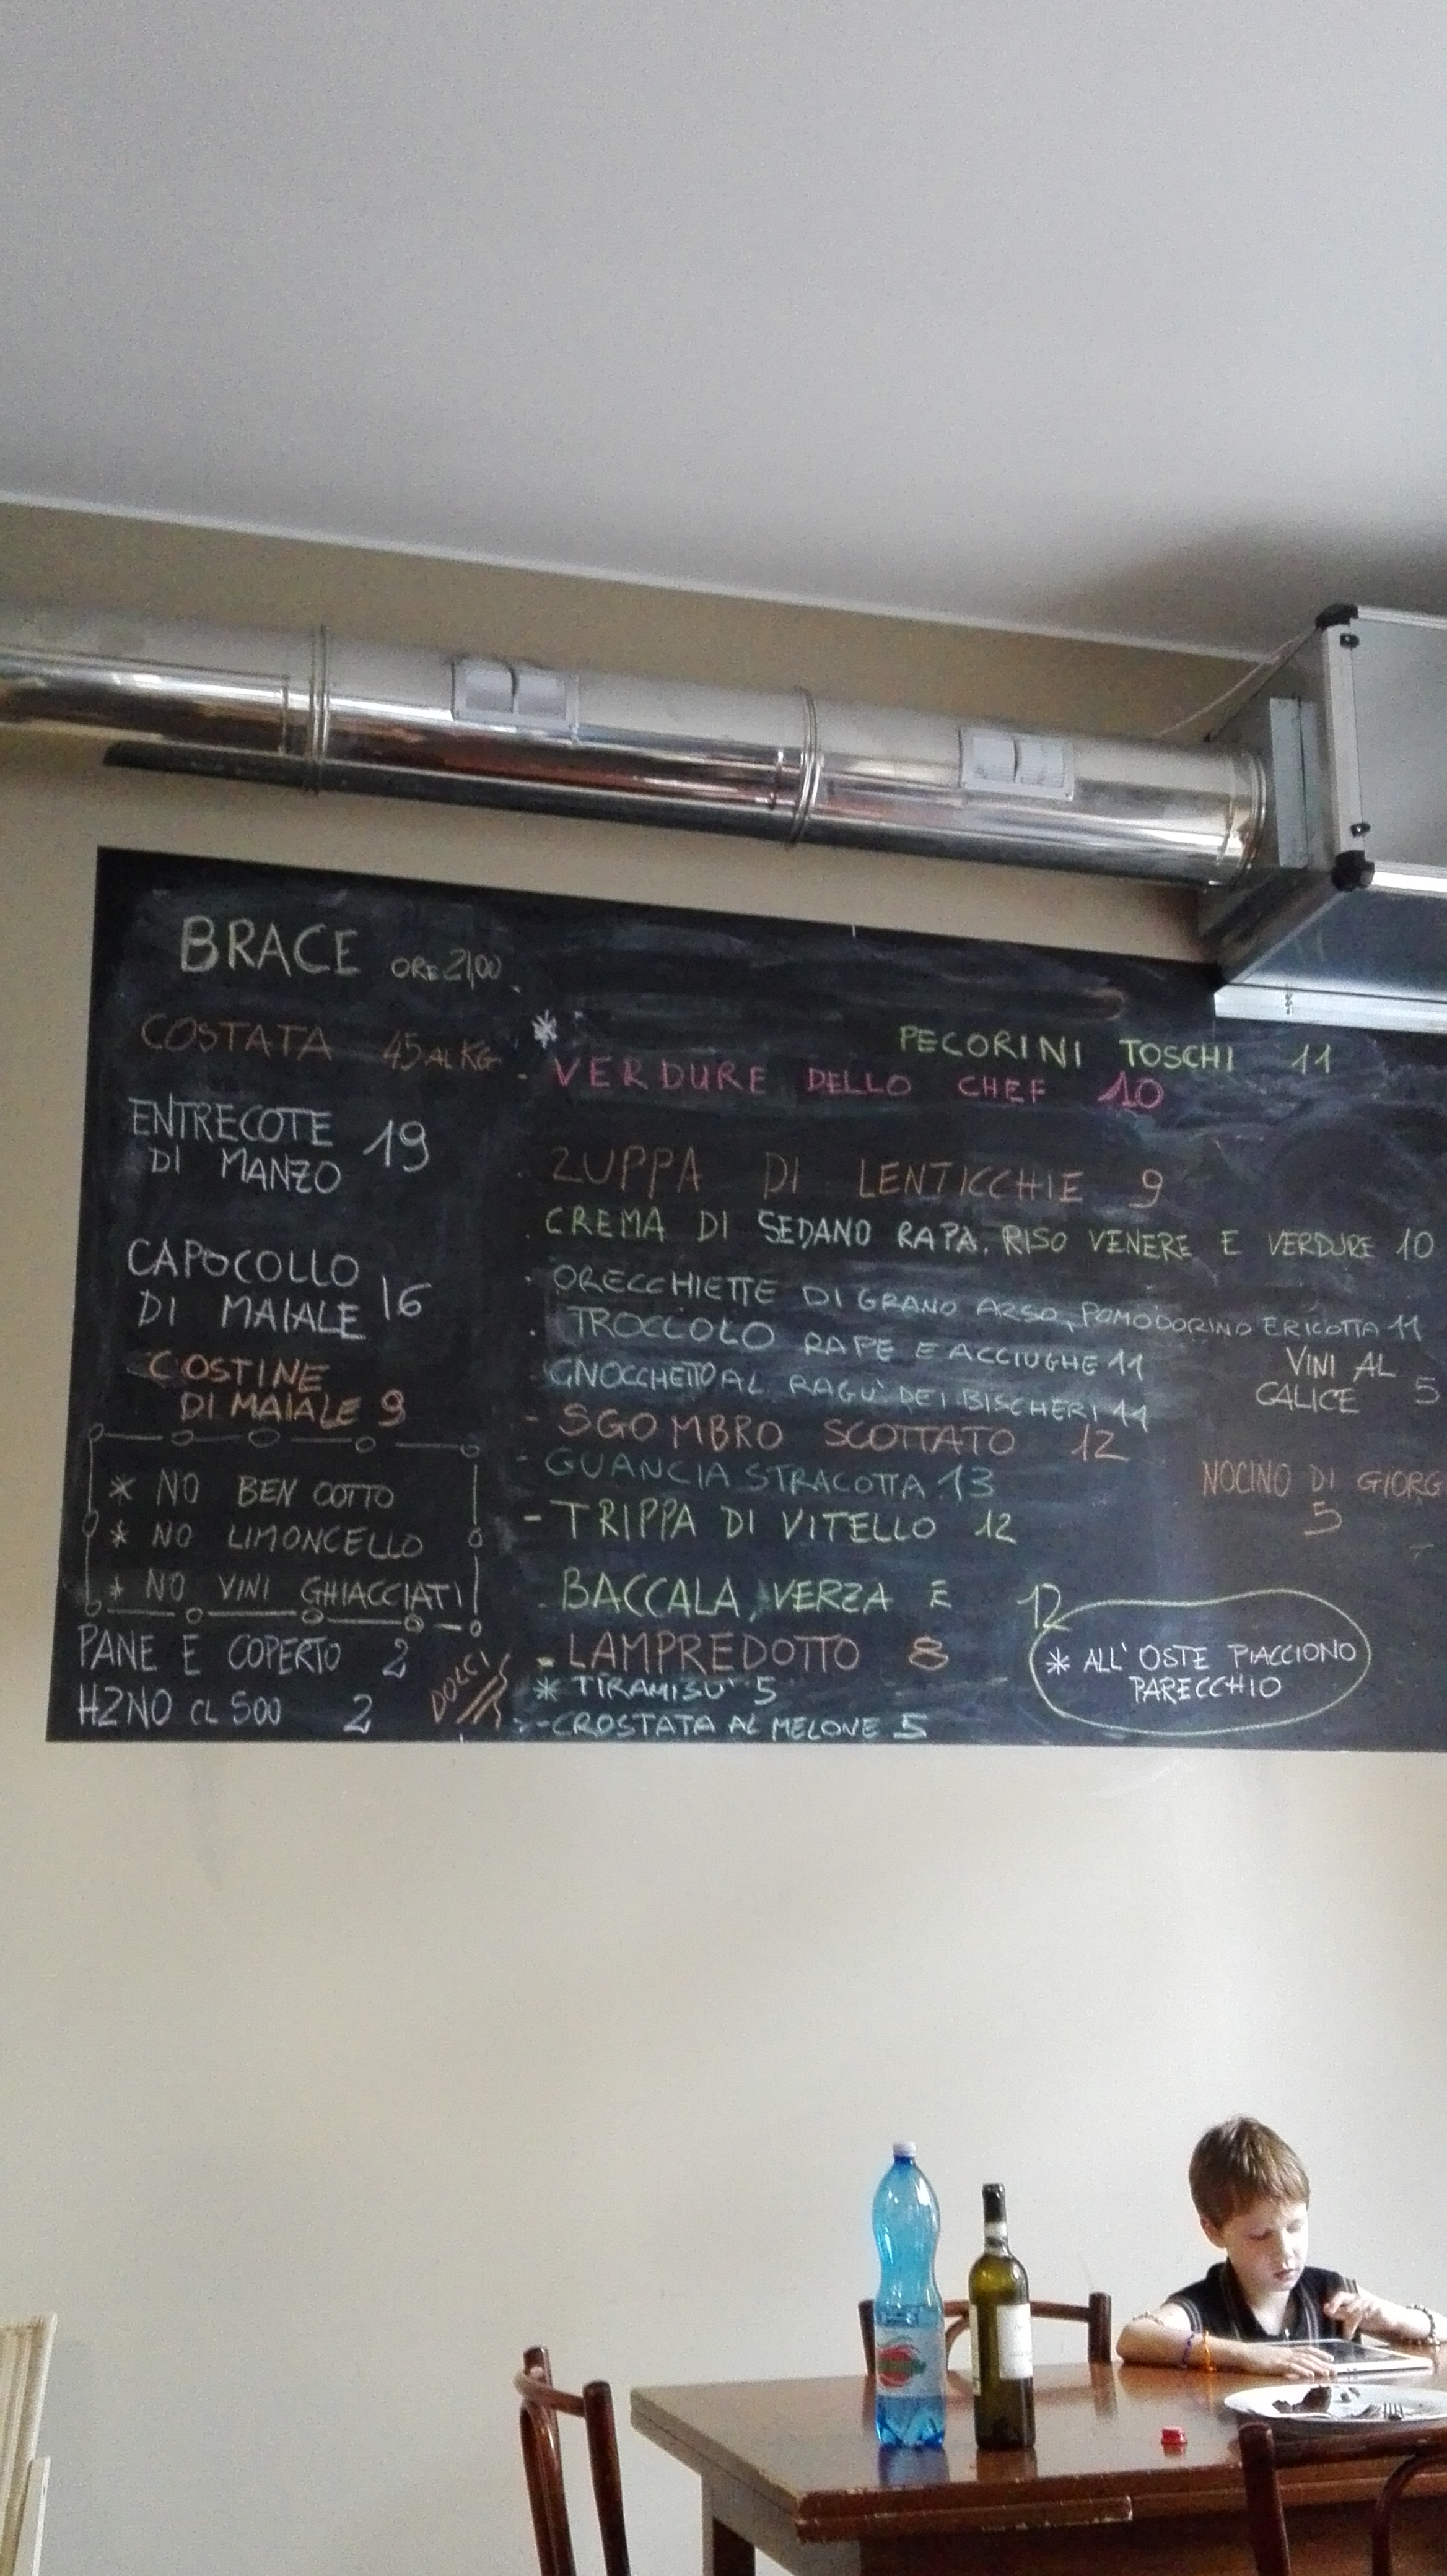 BRACE ORE 21,00
COSTATA 45 AL KG
ENTRECOTE
DI MANZO 19
CAPOCOLLO
DI MAIALE 16
COSTINE
DI MAIALE 9
* NO BEN COTTO
* NO LIMONCELLO
* NO VINI GHIACCIATI
PANE E COPERTO 2
H2NO CL 500 2
*
PECORINI TOSCHI 11
- VERDURE DELLO CHEF 10
- ZUPPA DI LENTICCHIE 9
- CREMA DI SEDANO RAPA, RISO VENERE E VERDURE 10
- ORECCHIETTE DI GRANO ARSO, POMODORINO E RICOTTA 11
- TROCCOLO RAPE E ACCIUGHE 11
- GNOCCHETTO AL RAGU' DEI BISCHERI 11
- SGOMBRO SCOTTATO 12
- GUANCIA STRACOTTA 13
- TRIPPA DI VITELLO 12
- BACCALA, VERZA E 12
- LAMPREDOTTO 8
DOLCI
* TIRAMISU' 5
- CROSTATA AL MELONE 5
VINI AL
CALICE 5
NOCINO DI GIORG
5
* ALL'OSTE PIACCIONO
PARECCHIO